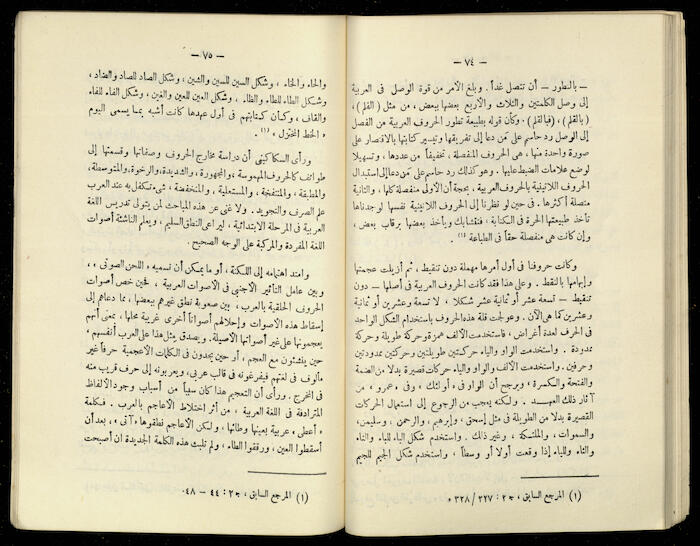 — ٧٤ —
— بالتطور — أن تتصل غداً . وبلغ الأمر من قوة الوصل فى العربية
إلى وصل الكلمتين والثلاث والأربع بعضها ببعض ، من مثل (القلم) ،
(بالقلم) ، (فبالقلم) . وكأن قوله بطبيعة تطور الحروف العربية من الفصل
إلى الوصل رد حاسم على من دعا إلى تفريقها وتيسير كتابتها بالاقتصار على
صورة واحدة منها ، هى الحروف المنفصلة ، تخفيفاً من عددها ، وتسهيلا
لوضع علامات الضبط عليها . وهو كذلك رد حاسم على من دعا إلى استبدال
الحروف اللاتينية بالحروف العربية ، بحجة أن الأولى منفصلة كلها ، والثانية
متصلة أكثرها . فى حين لو نظرنا إلى الحروف اللاتينية نفسها لوجدناها
تأخذ طبيعتها الحرة فى الكتابة ، فتتشابك ويأخذ بعضها برقاب بعض ،
وإن كانت هى منفصلة حقاً فى الطباعة (١) .
وكانت حروفنا فى أول أمرها مهملة دون تنقيط ، ثم أزيلت عجمتها
وإبهامها بالنقط . وعلى هذا فقد كانت الحروف العربية فى أصلها — دون
تنقيط — تسعة عشر أو ثمانية عشر شكلا ، لا تسعة وعشرين أو ثمانية
وعشرين كما هى الآن . وعولجت قلة هذه الحروف باستخدام الشكل الواحد
فى الحرف لعدة أغراض ، فاستخدمت الألف همزة وحركة طويلة وحركة
ممدودة . واستخدمت الواو والياء حركتين طويلتين وحركتين ممدودتين
وحرفين . واستخدمت الألف والواو والياء حركات قصيرة بدلا من الضمة
والفتحة والكسرة ، ويرجح أن الواو فى « أولئك » ، وفى « عمرو » من
آثار ذلك العهد . ولكنه يعجب من الرجوع إلى استعمال الحركات
القصيرة بدلا من الطويلة فى مثل إسحق ، وإبرهيم ، والرحمن ، وسليمن ،
والسموات ، والملئكة ، وغير ذلك . واستخدم شكل الباء للباء والتاء
والثاء وللياء إذا وقعت أولا أو وسطاً ، واستخدم شكل الجيم للجيم
(١) المرجع السابق ، ج٢ : ٢٢٧ / ٣٢٨ .
— ٧٥ —
والحاء والخاء ، وشكل السين للسين والشين ، وشكل الصاد للصاد والضاد ،
وشكل الطاء للطاء والظاء . وشكل العين للعين والغين ، وشكل الفاء للفاء
والقاف ، وكأن كتابتهم فى أول عهدها كانت أشبه بما يسمى اليوم
« الخط المختزل » (١) .
ورأى السكاكينى أن دراسة مخارج الحروف وصفاتها وقسمتها إلى
طوائف كالحروف المهموسة ، والمجهورة ، والشديدة ، والرخوة ، والمتوسطة ،
والمطبقة ، والمنفتحة ، والمستعلية ، والمنخفضة ، شىء تكفل به عند العرب
علم الصرف والتجويد . ولا غنى عن هذه المباحث لمن يتولى تدريس اللغة
العربية فى المرحلة الابتدائية ، ليراعى النطق السليم ، ويعلم الناشئة أصوات
اللغة المفردة والمركبة على الوجه الصحيح .
وامتد اهتمامه إلى اللكنة ، أو ما يمكن أن نسميه « اللحن الصوتى » ،
وبين عامل التأثير الأجنبى فى الأصوات العربية ، فحين خص أصوات
الحروف الحلقية بالعرب ، بين صعوبة نطق غيرهم ببعضها ، مما دعاهم إلى
إسقاط هذه الأصوات وإحلالهم أصواتاً أخرى غريبة محلها ، بمعنى أنهم
يعجمونها على غير أصواتها الأصيلة . ويصدق مثل هذا على العرب أنفسهم ،
حين ينشئون مع العجم ، أو حين يجدون فى الكلمات الأعجمية حرفاً غير
مألوف فى لغتهم فيفرغونه فى قالب عربى ، ويعربونه إلى حرف قريب منه
فى المخرج . ورأى أن التعجيم هذا كان سبباً من أسباب وجود الألفاظ
المترادفة فى اللغة العربية ، من أثر اختلاط الأعاجم بالعرب . فكلمة
« أعطى » عربية بعينها وطائها ، ولكن الأعاجم نطقوها « آتى » ، بعد أن
أسقطوا العين ، ورققوا الطاء ، ولم تلبث هذه الكلمة الجديدة أن أصبحت
(١) المرجع السابق ، ج٢ : ٤٤ — ٤٨ .